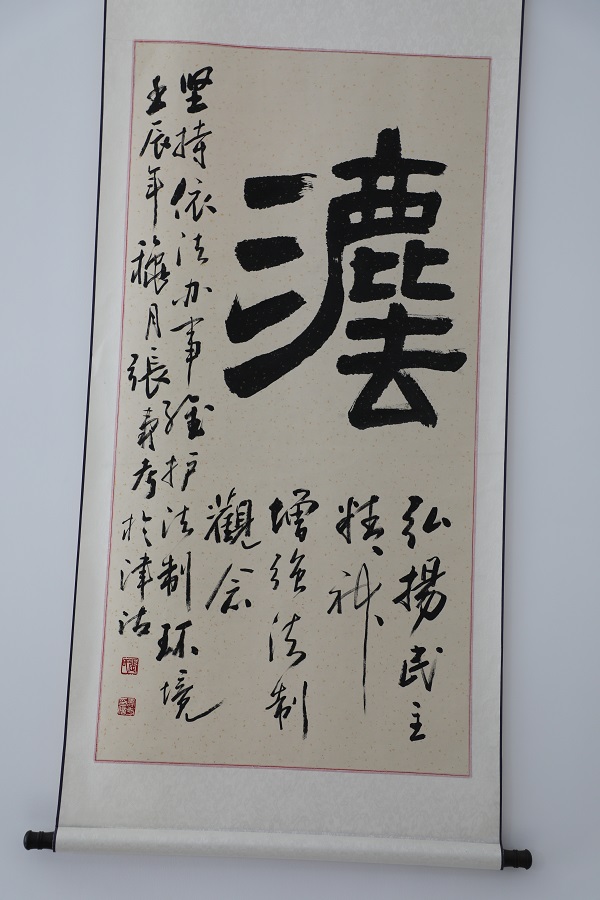 灋
弘揚民主
精神
增强法制
觀念
坚持依法办事维护法制环境
壬辰年穐月張寿考於津沽